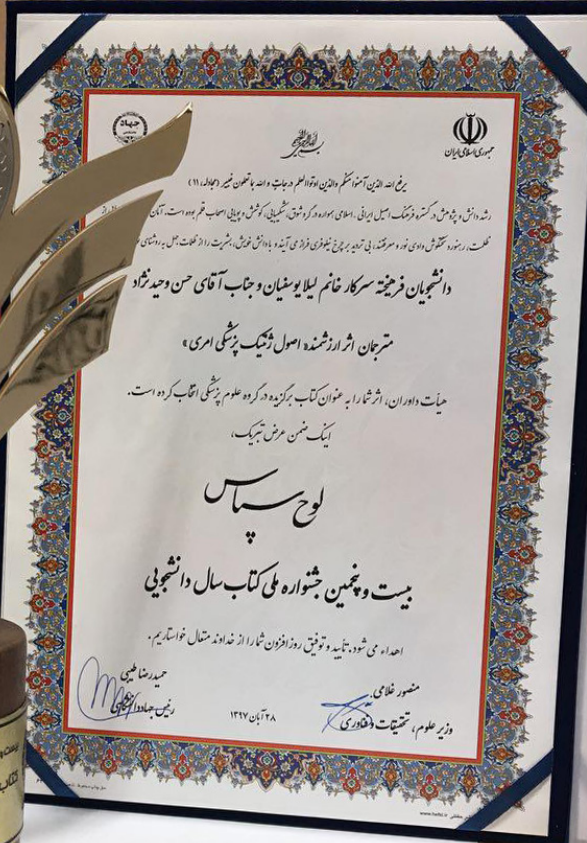 جهاد
جمهوری اسلامی ایران
یرفع الله الذین آمنوا منکم والذین اوتوا العلم درجات و الله بما تعملون خبیر (مجادله ۱۱)
رشد دانش و پژوهش در گستره فرهنگ اصیل ایرانی ـ اسلامی همواره در گرو شوق، شکیبایی، کوشش و پویایی اصحاب قلم بوده است. آنان
ظلمت، رهنورد وادی نور و معرفتند، بی تردید بر چرخ نیلوفری فراز می آیند و با دانش خویش، بشریت را از ظلمات جهل به روشنای
دانشجویان فرهیخته سرکار خانم لیلا یوسفیان و جناب آقای حسن وحیدنژاد
مترجمان اثر ارزشمند «اصول ژنتیک پزشکی امری»
هیأت داوران، اثر شما را به عنوان کتاب برگزیده در گروه علوم پزشکی انتخاب کرده است.
اینک ضمن عرض تبریک،
لوح سپاس
بیست و پنجمین جشنواره ملی کتاب سال دانشجویی
اهداء می شود. تأیید و توفیق روزافزون شما را از خداوند متعال خواستاریم.
منصور غلامی
وزیر علوم، تحقیقات و فناوری
۲۸ آبان ۱۳۹۷
حمیدرضا طیبی
رئیس جهاددانشگاهی
کتاب